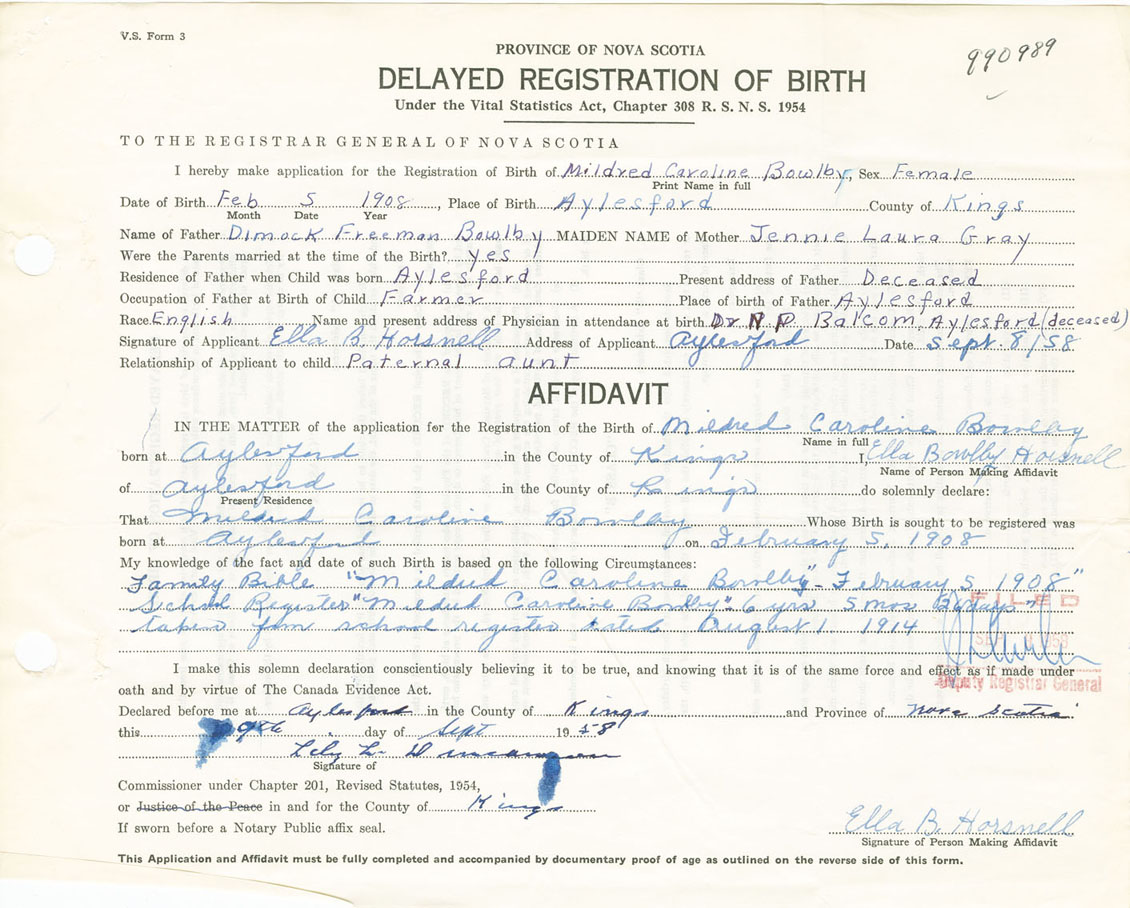 V.S. Form 3
PROVINCE OF NOVA SCOTIA
990989
DELAYED REGISTRATION OF BIRTH
Under the Vital Statistics Act, Chapter 308 R. S. N. S. 1954
TO THE REGISTRAR GENERAL OF NOVA SCOTIA
I hereby make application for the Registration of Birth of Mildred Caroline Bowlby, Sex Female
Print Name in full
Date of Birth Feb 5 1908, Place of Birth Aylesford County of Kings
Month Date Year
Name of Father Dimock Freeman Bowlby MAIDEN NAME of Mother Jennie Laura Gray
Were the Parents married at the time of the Birth? yes
Residence of Father when Child was born Aylesford Present address of Father Deceased
Occupation of Father at Birth of Child Farmer Place of birth of Father Aylesford
Race English Name and present address of Physician in attendance at birth Dr N P Balcom, Aylesford (deceased)
Signature of Applicant Ella B. Horsnell Address of Applicant Aylesford Date Sept. 8/58
Relationship of Applicant to child Paternal aunt
AFFIDAVIT
IN THE MATTER of the application for the Registration of the Birth of Mildred Caroline Bowlby
Name in full
born at Aylesford in the County of Kings I, Ella Bowlby Horsnell
Name of Person Making Affidavit
of Aylesford in the County of Kings do solemnly declare:
Present Residence
That Mildred Caroline Bowlby Whose Birth is sought to be registered was
born at Aylesford on February 5, 1908
My knowledge of the fact and date of such Birth is based on the following Circumstances:
Family Bible "Mildred Caroline Bowlby" - February 5 1908"
School Register "Mildred Caroline Bowlby" 6 yrs 5 mos days"
taken from school register dated August 1 1914
FILED
I make this solemn declaration conscientiously believing it to be true, and knowing that it is of the same force and effect as if made under
oath and by virtue of The Canada Evidence Act.
Deputy Registrar General
Declared before me at Aylesford in the County of Kings and Province of Nova Scotia
this 9th day of Sept 1958
Signature of
Commissioner under Chapter 201, Revised Statutes, 1954,
or Justice of the Peace in and for the County of Kings
If sworn before a Notary Public affix seal.
Ella B. Horsnell
Signature of Person Making Affidavit
This Application and Affidavit must be fully completed and accompanied by documentary proof of age as outlined on the reverse side of this form.